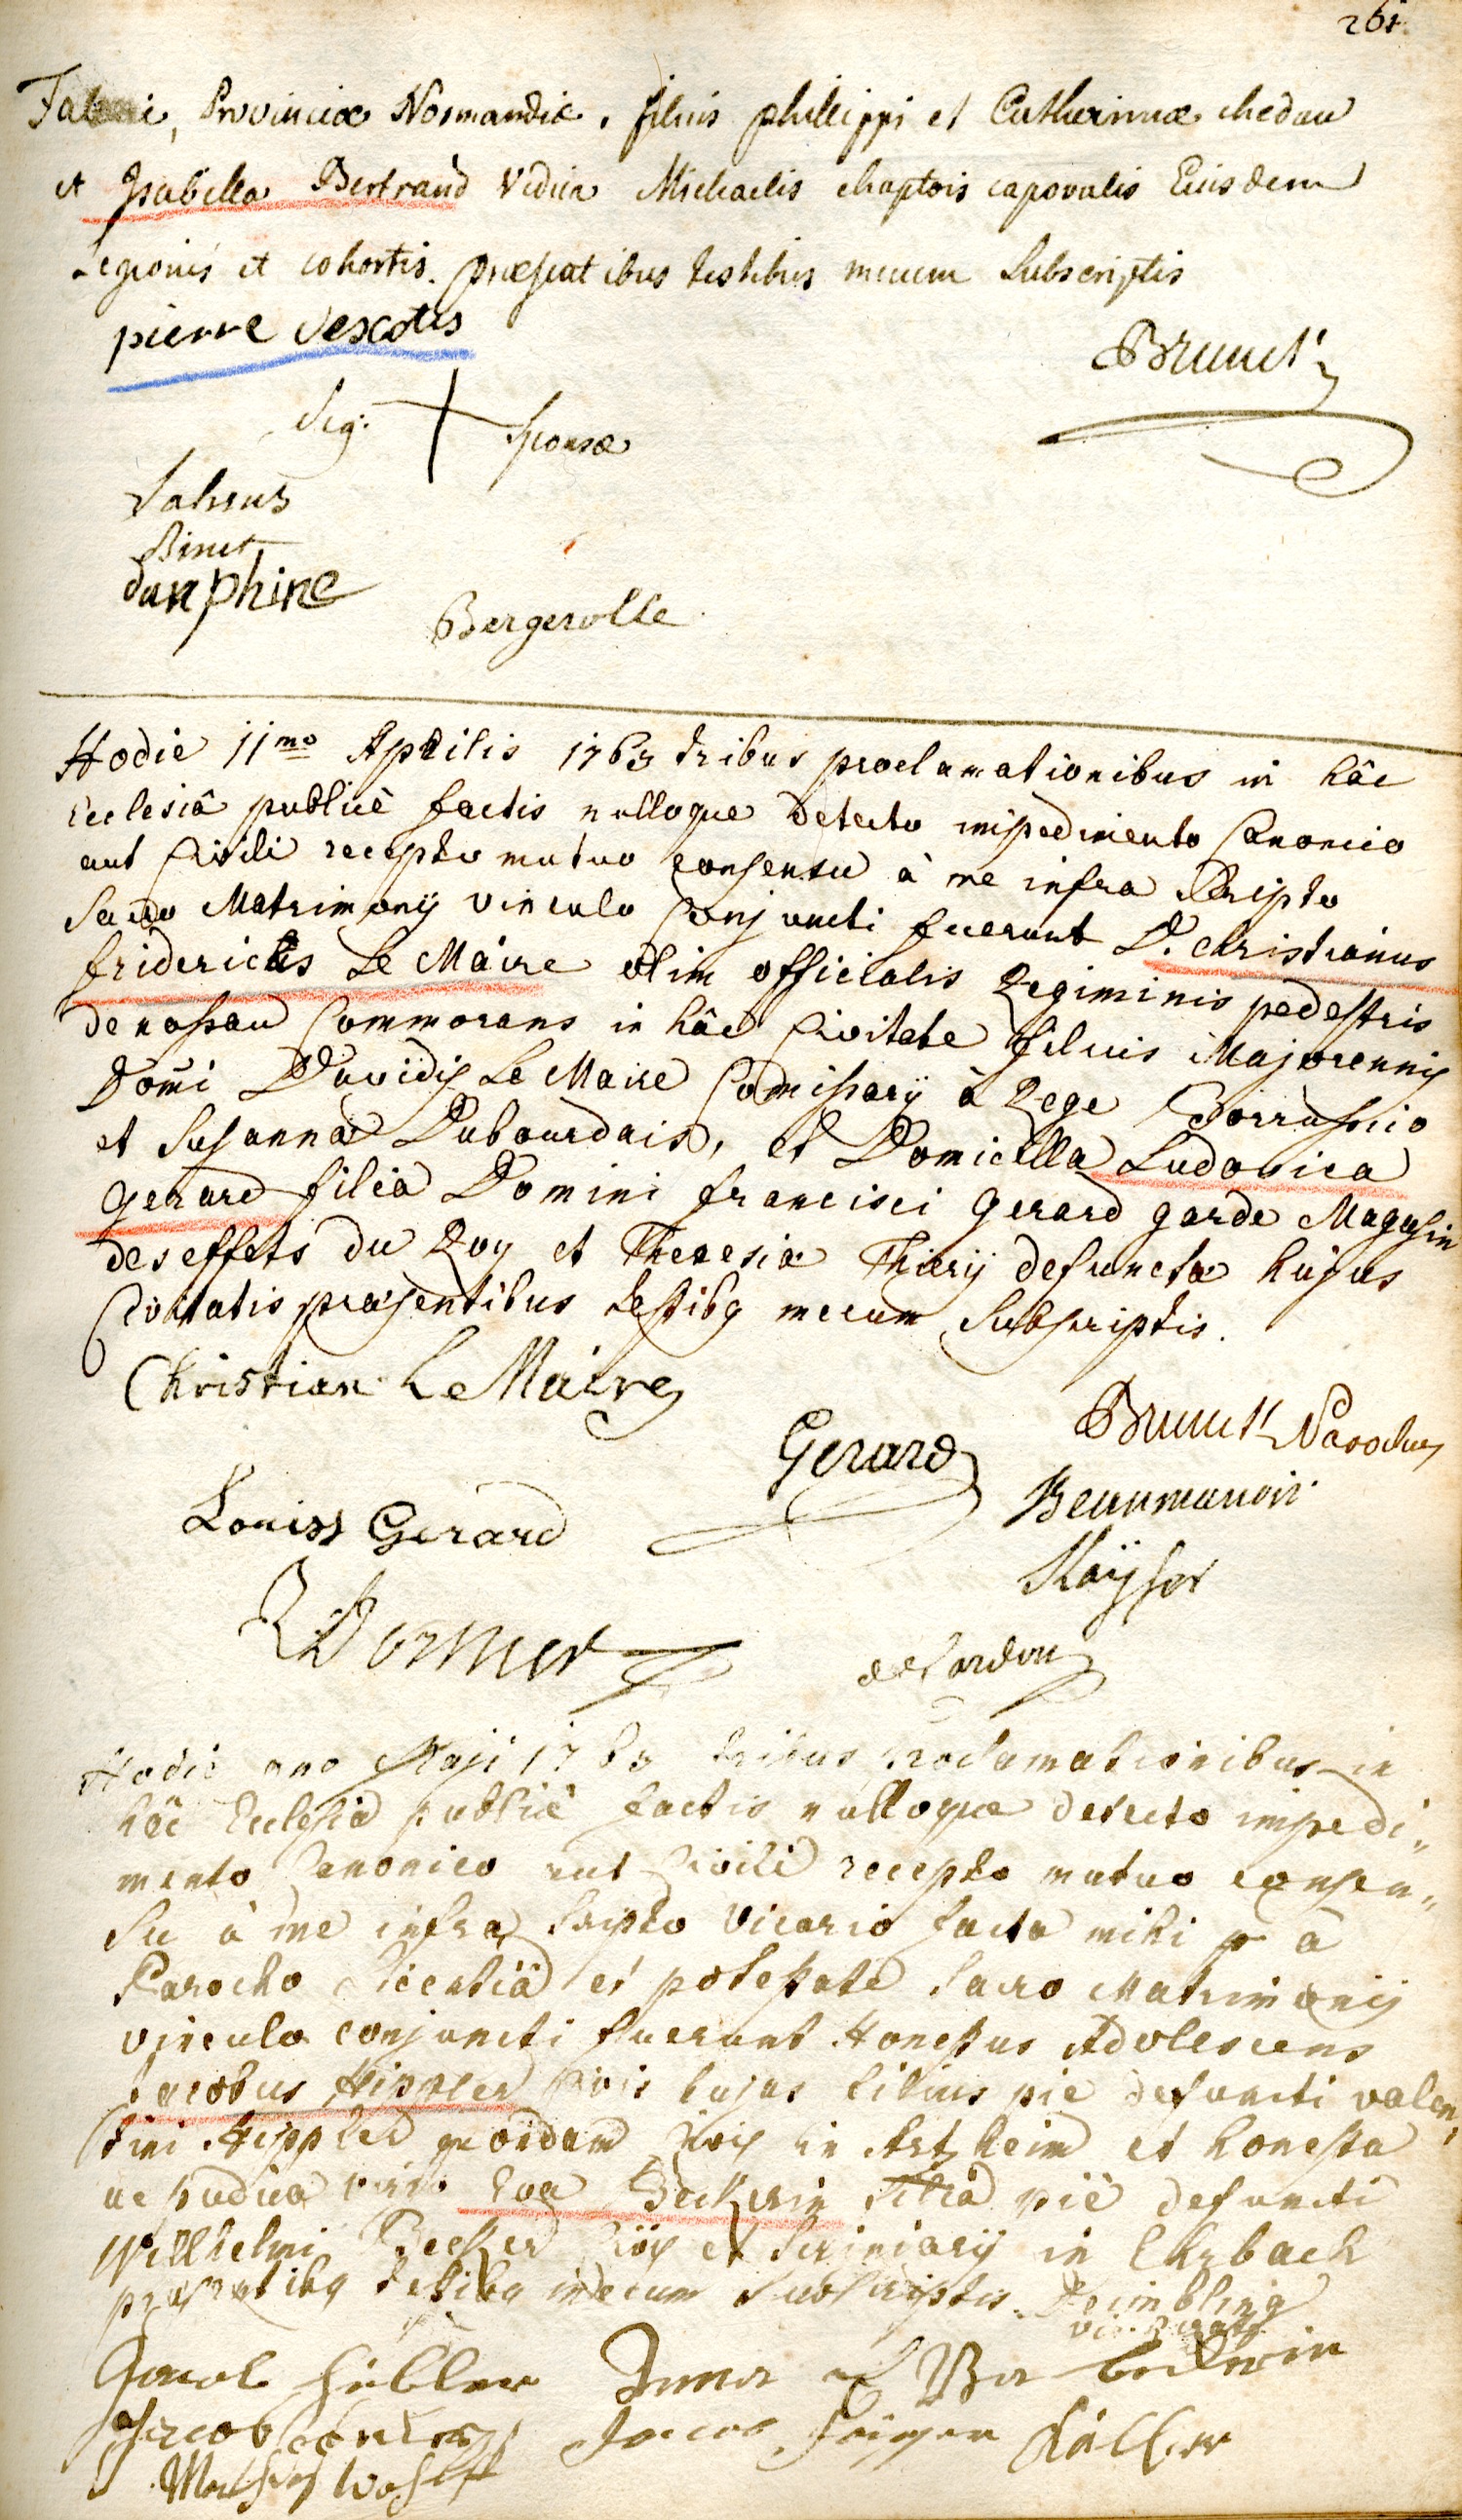 261.
Provinciæ Normandiæ, filius phillippi et Catharinnæ chedau
et Isabella Bertrand Vidua Michaelis chaptois caporalis Eiusdem
Legionis et cohortis. præsentibus testibus mecum Subscriptis
pierre vescotis
Brunet
Sig: Sponsæ
Binet
dauphine
Bergerolle
Hodie 11mo Aprilis 1763 tribus proclamationibus in hâc
Ecclesiâ publicè factis nulloque detecto impedimento Canonico
aut Civili recepto mutuo consensu à me infra scripto
Sacro Matrimonij vinculo Conjuncti fuerunt D. christianus
fridericus Le Maire olim officialis Regiminis pedestris
de nassau Commorans in hâc Civitate filius Majorennis
Domi Davidis Le Maire Comissarij à Rege Borrussio
et Susanna Dubourdais, et Domicella Ludovica
Gerard filia Domini francisci Gerard garde Magasin
des effets du Roy et Theresia Thierij defuncta hujus
Civitatis præsentibus testibq mecum Subscriptis.
Christian Le Maire
Brunet Parochus
Gerard
Beaumanoir
Louiss Gerard
Kaÿser
Dormer
Hodie Maji 1763 tribus proclamationibus in
hâc Ecclesia publicè factis nulloque detecto impedi„
mento Canonico aut Civili recepto mutuo consen„
su à me infra scripto Vicario facta mihi à
Parocho licentiâ et potestate Sacro Matrimonij
vinculo conjuncti fuerunt Honestus Adolescens
Jacobus Hippler Civis hujus filius pie defuncti valen„
tini Hippler quondam Civis in Artzheim et honesta
ac pudica virgo Eva Beckerin filia piè defuncti
Willhelmi Becker Civis et Scriniarij in Ehrbach
præsentibq testibq mecum Subscriptis. Reimbling
Jacob
Jacob
Mathes Wohlff